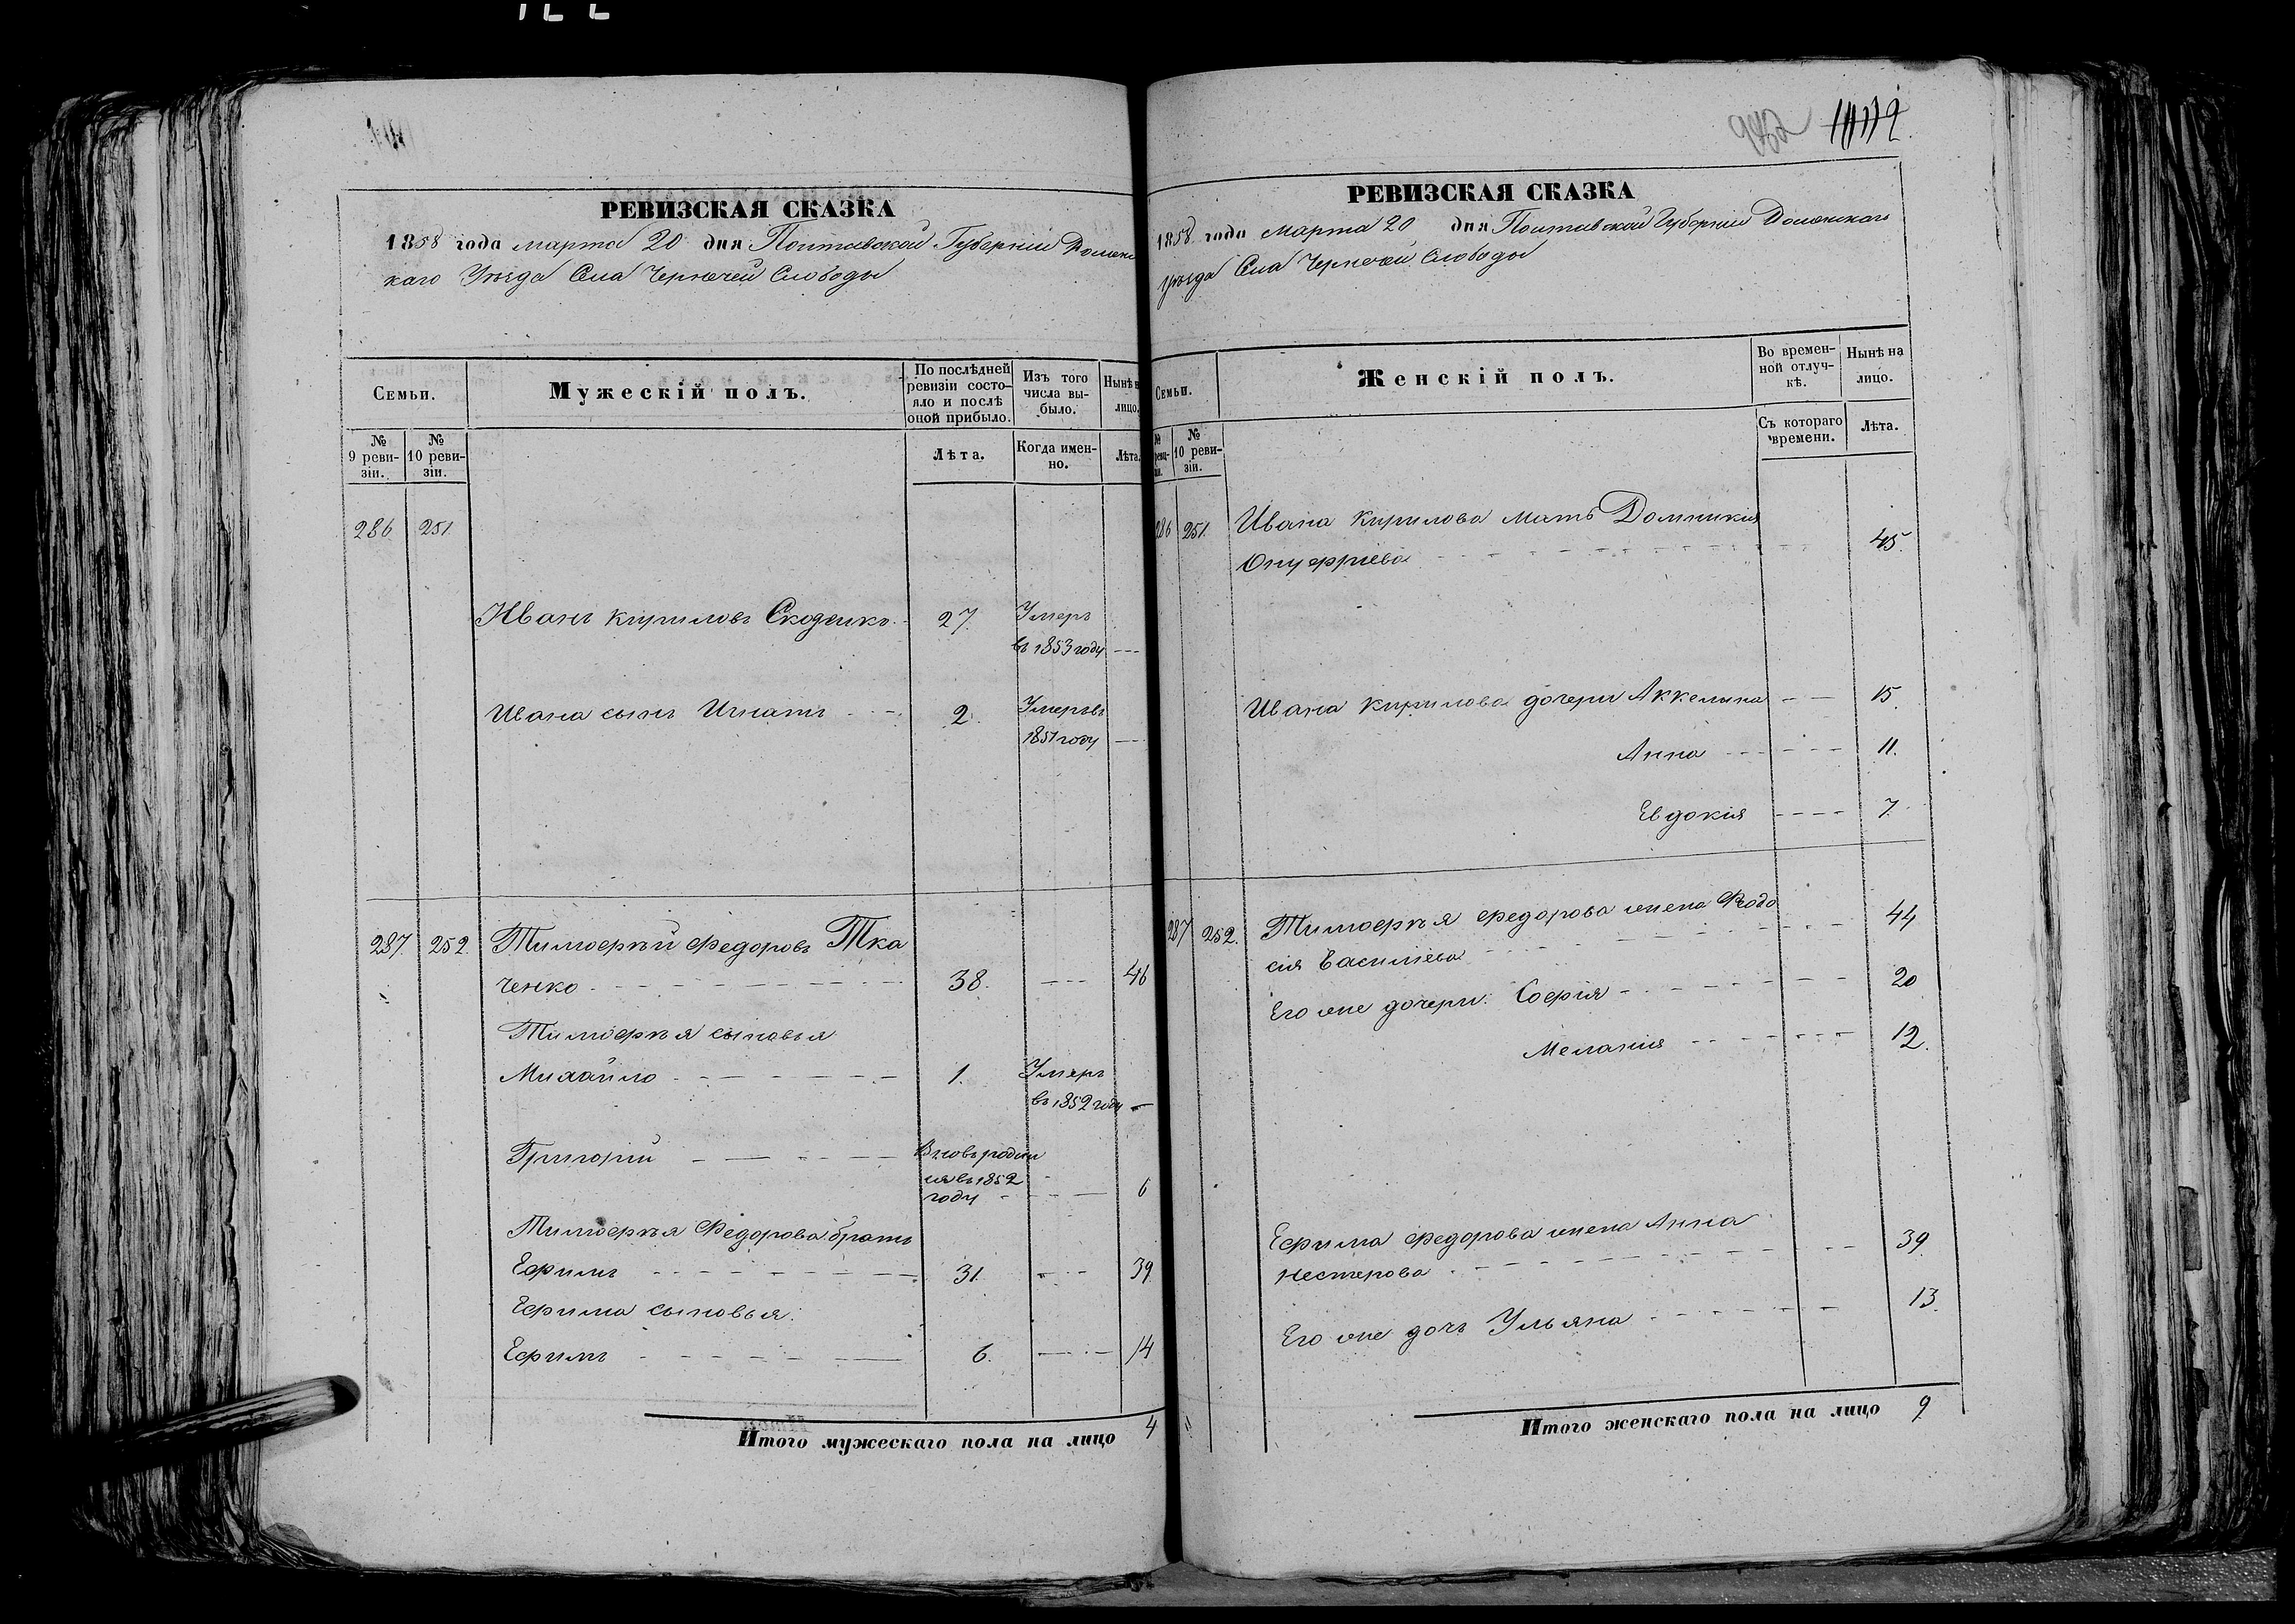 РЕВИЗСКАЯ СКАЗКА
1858 года марта 20 дня Полтавской Губернии Роменс
каго Уѣзда Села Чернечей Слободы
Семьи.
Мужескій полъ.
По послѣдней ревизіи состояло и послѣ оной прибыло.
Изъ того числа выбыло.
Нынѣ н лицо.
№ 9 ревизіи.
№ 10 ревизіи.
Лѣта.
Когда именно.
Лѣта.
286 251.
Иванъ Кириловъ 27. Умеръ
въ 1853 году
Ивана сынъ Игнатъ 2. Умеръ въ
1851 году
287. 252. Тимофѣй Федоровъ Тка
ченко 38. 46
Тимофѣя сыновья
Михайло 1. Умеръ
въ 1852 году
Григорій Вновь родил
ся въ 1852
году 6
Тимофѣя Федорова братъ
Ефимъ 31. 39.
Ефима сыновья:
Ефимъ 6. 14
Итого мужескаго пола на лицо 4
РЕВИЗСКАЯ СКАЗКА
1858 года Марта 20 дня Полтавской Губернии Роменскаго
уѣзда Села Чернечей Слободы
Семьи.
Женскій полъ.
Во временной отлучкѣ.
Нынѣ на лицо.
№ 10 ревизіи.
Съ котораго времени.
Лѣта.
286 251. Ивана Кирилова мать Домникія
Онуфріева 45.
Ивана Кирилова дочери Аккелина 15.
Анна 11.
Евдокія 7.
287 252. Тимофѣя Федорова жена Феодо
сія Василіева 44
Его же дочери: Софія 20
Меланія 12.
Ефима Федорова жена Анна
Нестерова 39.
Его же дочь Ульяна 13.
Итого женскаго пола на лицо 9